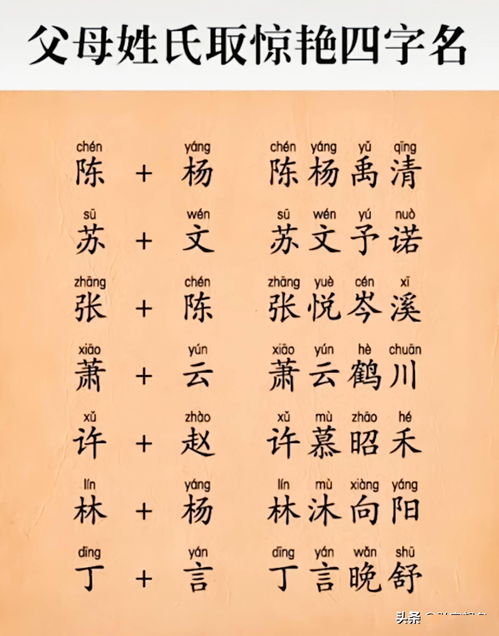 父母姓氏取惊艳四字名
chén yáng chén yáng yǔ qīng
陈 + 杨 陈杨禹清
sū wén sū wén yú nuò
苏 + 文 苏文予诺
zhāng chén zhāng yuè cén xī
张 + 陈 张悦岑溪
xiāo yún xiāo yún hè chuān
萧 + 云 萧云鹤川
xǔ zhào xǔ mù zhāo hé
许 + 赵 许慕昭禾
lín yáng lín mù xiàng yáng
林 + 杨 林沐向阳
dīng yán dīng yán wǎn shū
丁 + 言 丁言晚舒
头条